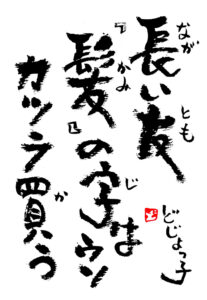 長い友
『髪』の字はウソ
カツラ買う
どじょっ子
なが
とも
かみ
じ
か